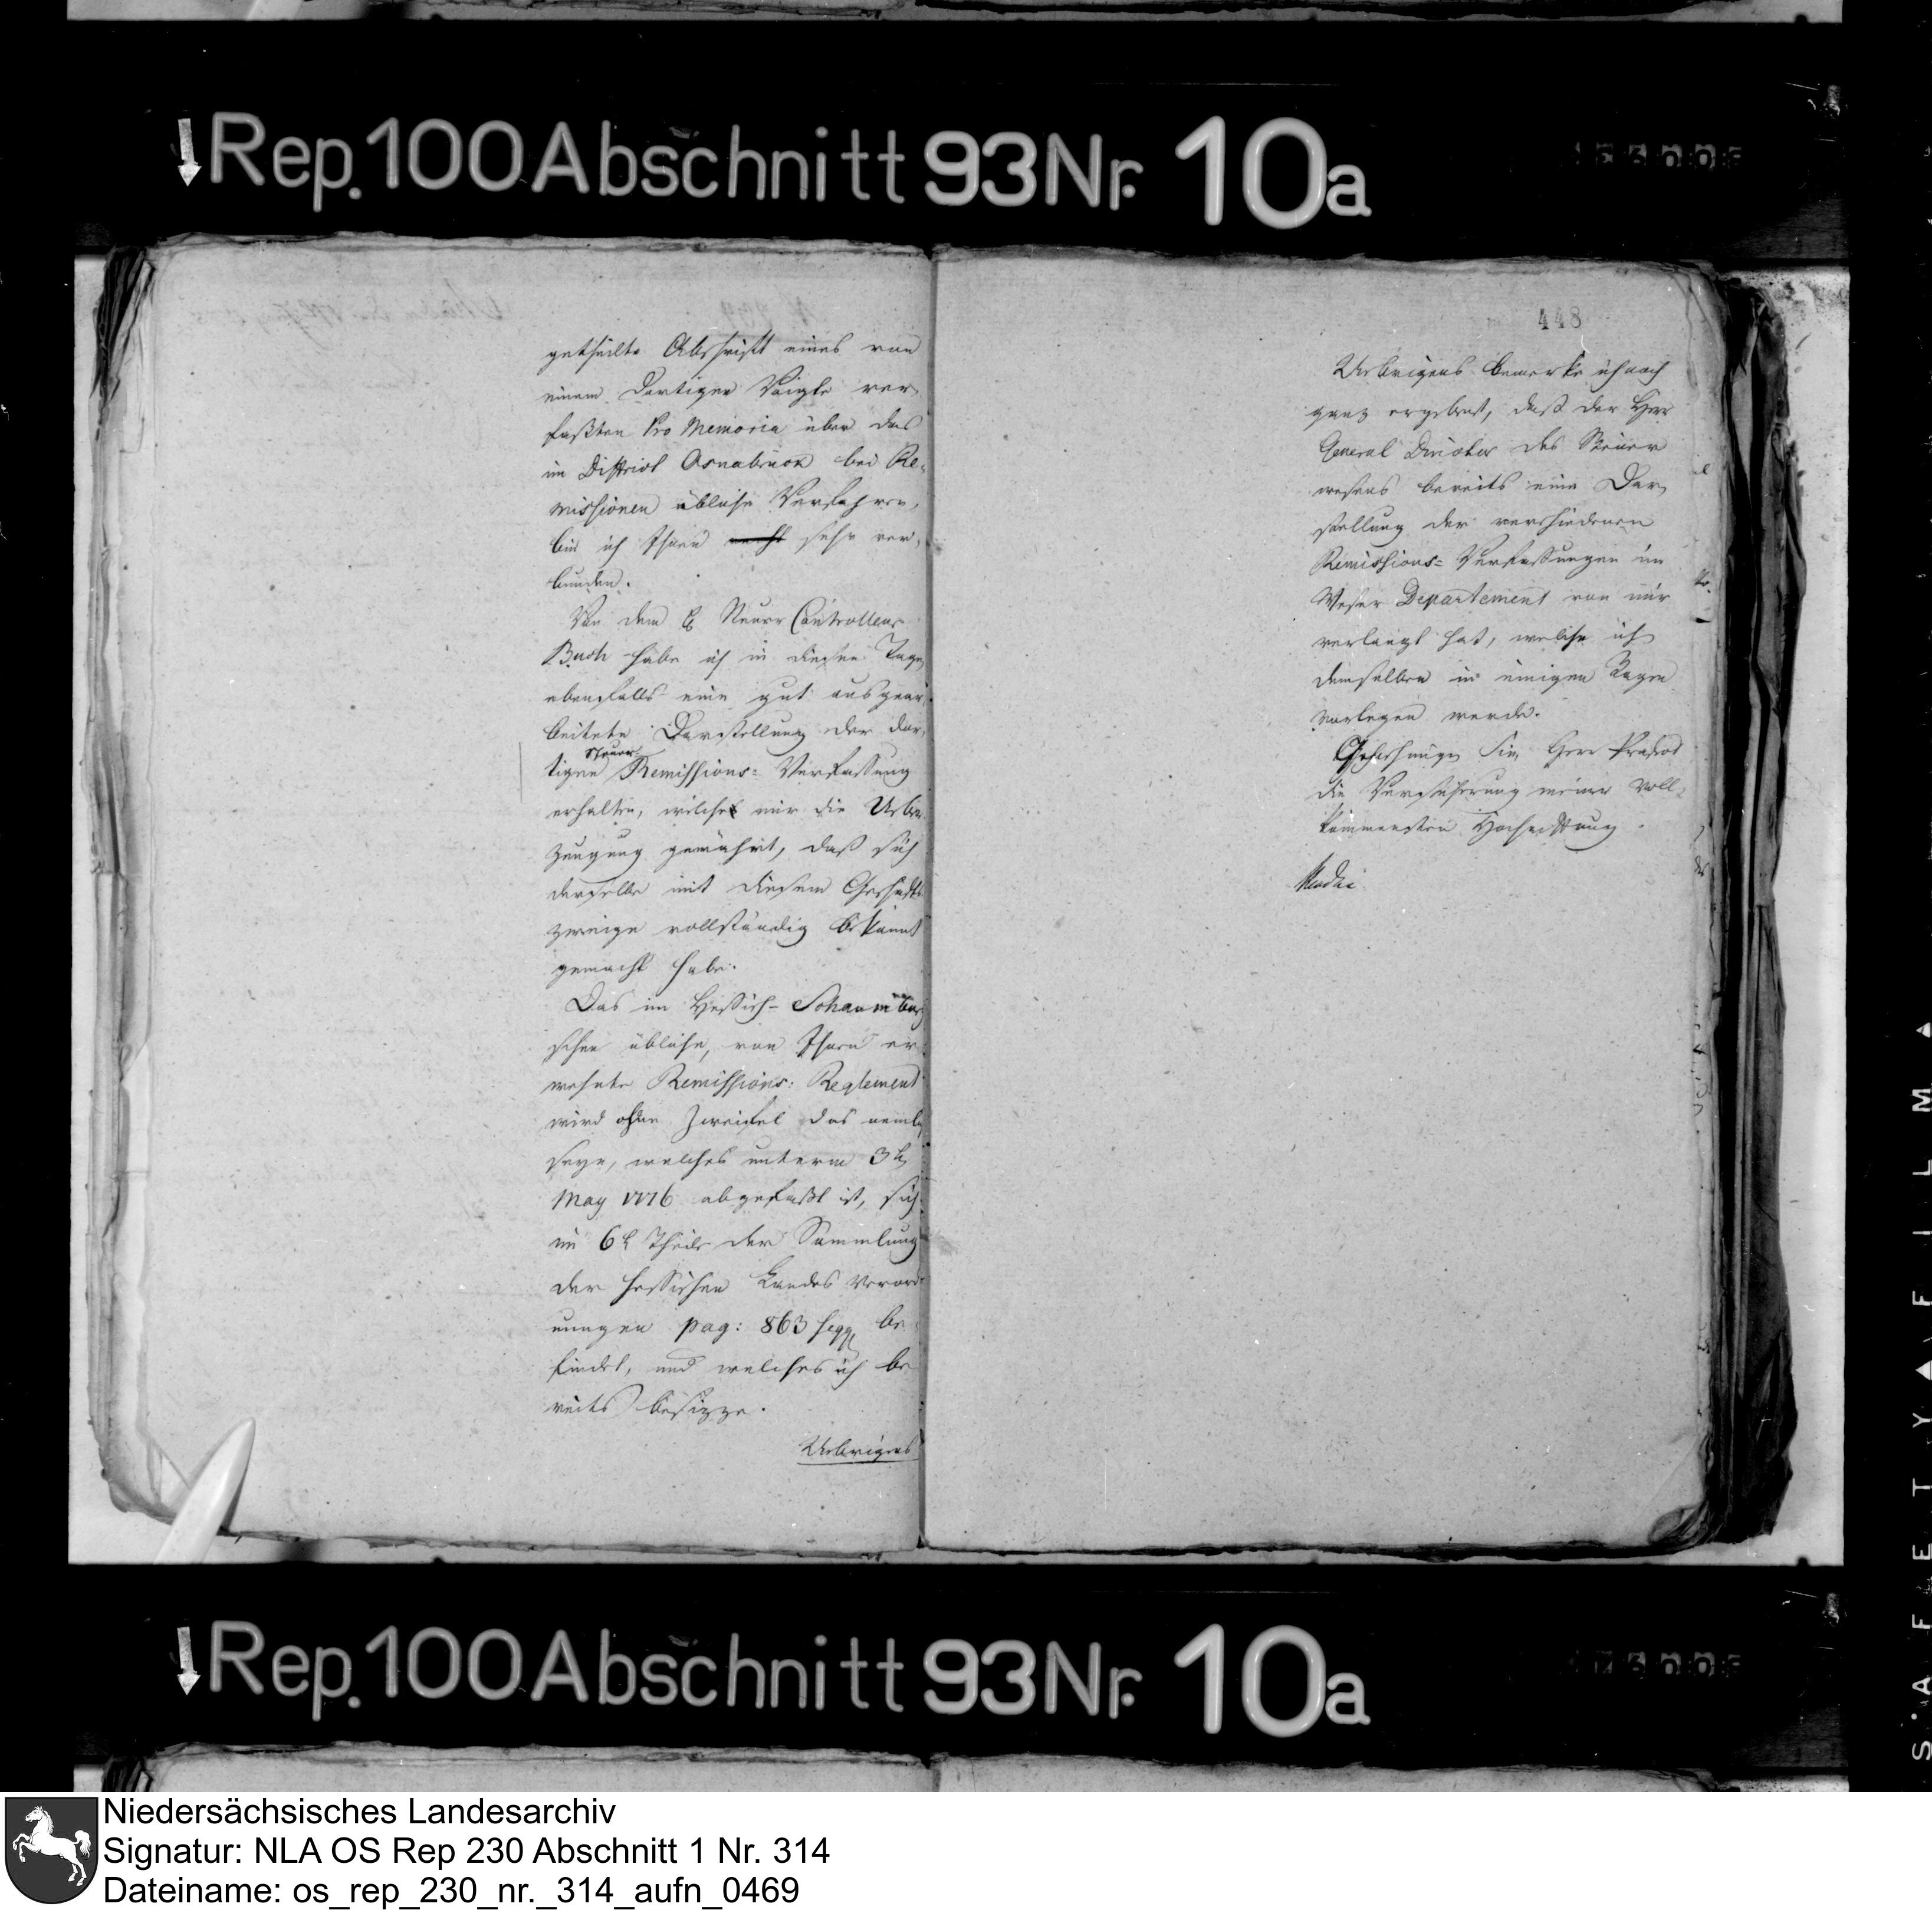 Rep. 100 Abschnitt 93 Nr. 10a
getheilte Abschrift eines von
einem dortigen Voigte ver-
faßten Pro Memoria über das
im District Osnabrück bei Re-
missionen übliche Verfahren,
bin ich Ihnen sehr ver-
bunden.
Von dem H. Steuer Controlleur
Busch habe ich in diesen Tagen
ebenfalls eine gut ausgear-
beitete Darstellung der dor-
tigen Steuer Remissions-Verfassung
erhalten, welche mir die Ueber
zeugung gewährt, daß sich
derselbe mit diesem Geschäfts
zweige vollständig bekannt
gemacht habe.
Das im Hessisch-Schaumburg
schen übliche, von Ihnen er
wehnte Remissions-Reglement
wird ohne Zweifel das neml.
seyn, welches unterm 3t
May 1776 abgefaßt ist, sich
im 6t Theile der Sammlung
der hessischen Landes Verord
nungen pag: 863 seqq be
findet, und welches ich be
reits besizze.
Uebrigens
448
Uebrigens bemerke ich noch
ganz ergebenst, daß der Herr
General Director des Steuer
wesens bereits eine Dar
stellung der verschiedenen
Remissions-Verfassungen im
Weser Departement von mir
verlangt hat, welche ich
demselben in einigen Tagen
vorlegen werde.
Genehmigen Sie, Herr Präfect
die Versicherung meiner voll-
kommensten Hochachtung.
Rep. 100 Abschnitt 93 Nr. 10a
SAFETY FILM
Niedersächsisches Landesarchiv
Signatur: NLA OS Rep 230 Abschnitt 1 Nr. 314
Dateiname: os_rep_230_nr._314_aufn_0469